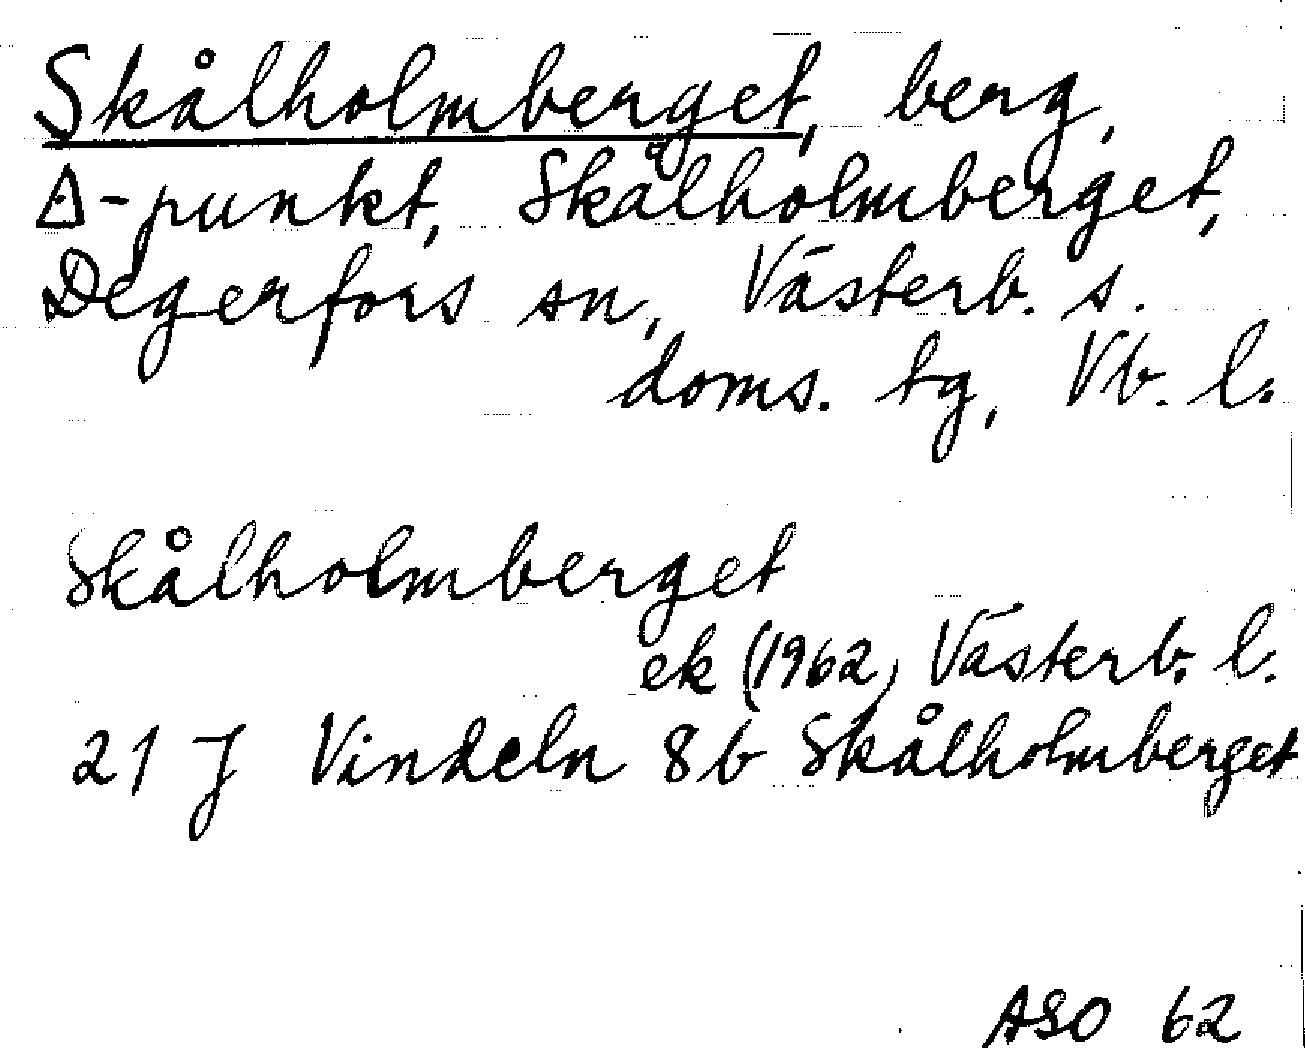 Skålholmberget, berg,
∆-punkt, Skålholmberget,
Degerfors sn, Västerb. s.
doms. tg, Vb. l.
Skålholmberget
ek (1962) Västerb. l.
21 J Vindeln 8b Skålholmberget
ASO 62